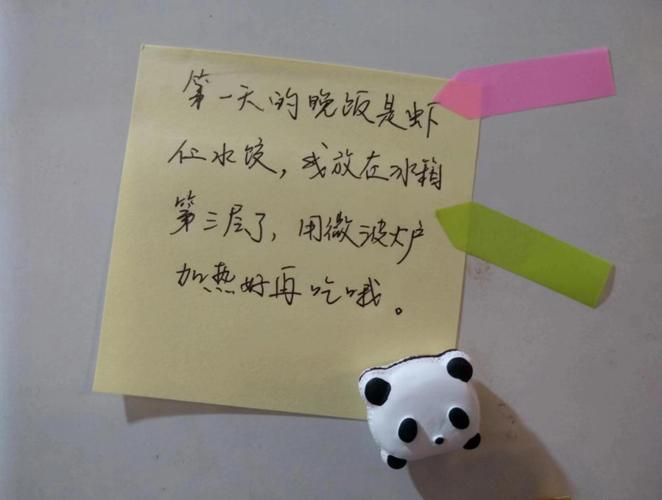 第一天的晚饭是虾
仁水饺，我放在冰箱
第三层了，用微波炉
加热好再吃哦。